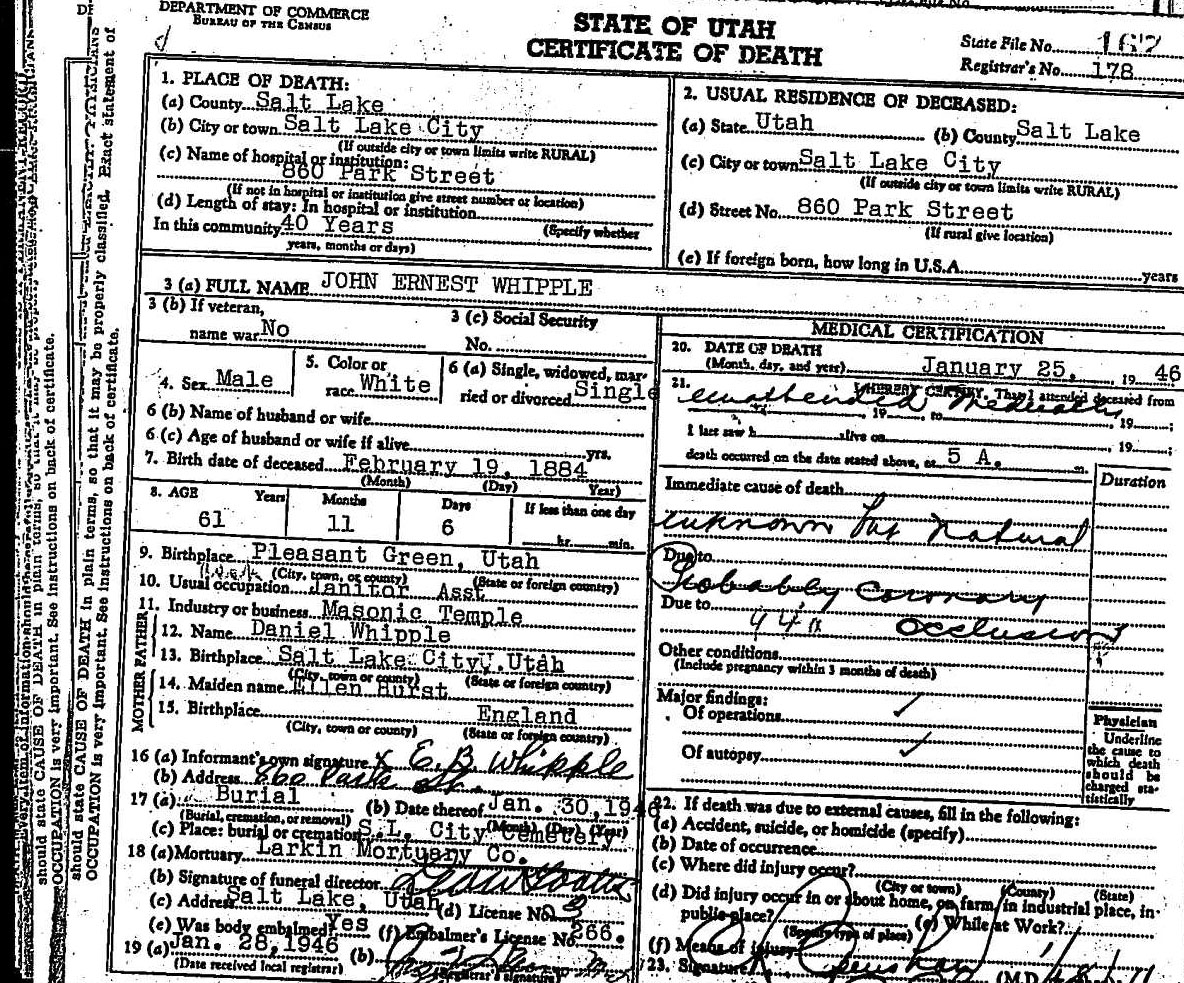 DEPARTMENT OF COMMERCE
BUREAU OF THE CENSUS
STATE OF UTAH
CERTIFICATE OF DEATH
State File No. 162
Registrar's No. 178
1. PLACE OF DEATH:
(a) County Salt Lake
(b) City or town Salt Lake City
(If outside city or town limits write RURAL)
(c) Name of hospital or institution:
860 Park Street
(If not in hospital or institution give street number or location)
(d) Length of stay: In hospital or institution
In this community 40 Years (Specify whether
years, months or days)
2. USUAL RESIDENCE OF DECEASED:
(a) State Utah (b) County Salt Lake
(c) City or town Salt Lake City
(If outside city or town limits write RURAL)
(d) Street No. 860 Park Street
(If rural give location)
(e) If foreign born, how long in U.S.A. years
3 (a) FULL NAME JOHN ERNEST WHIPPLE
3 (b) If veteran,
name war No
3 (c) Social Security
No.
4. Sex Male
5. Color or
race White
6 (a) Single, widowed, mar-
ried or divorced Single
6 (b) Name of husband or wife
6 (c) Age of husband or wife if alive yrs.
7. Birth date of deceased February 19, 1884
(Month) (Day) Year)
8. AGE Years Months Days If less than one day
61 11 6 hr. min.
9. Birthplace Pleasant Green, Utah
(City, town, or county) (State or foreign country)
10. Usual occupation Janitor Asst
11. Industry or business Masonic Temple
FATHER
12. Name Daniel Whipple
13. Birthplace Salt Lake City U.Utah
(City, town or county) (State or foreign country)
MOTHER
14. Maiden name Ellen Hurst
15. Birthplace England
(City, town or county) (State or foreign country)
16 (a) Informant's own signature x E.B Whipple
(b) Address 860 Park St.
17 (a) Burial (b) Date thereof Jan. 30, 1946
(Burial, cremation, or removal) (Month) (Day) (Year)
(c) Place: burial or cremation S.L. City Cemetery
18 (a) Mortuary Larkin Mortuary Co.
(b) Signature of funeral director
(c) Address Salt Lake, Utah (d) License No. 3
(e) Was body embalmed? Yes (f) Embalmer's License No. 266.
19 (a) Jan. 28, 1946 (b)
(Date received local registrar) (Registrar's signature)
MEDICAL CERTIFICATION
20. DATE OF DEATH
(Month, day, and year) January 25, 19 46
21. I HEREBY CERTIFY, That I attended deceased from
unattended medically 19 to 19 ;
I last saw h alive on 19 ;
death occurred on the date stated above, at 5 A. m.
Immediate cause of death Duration
unknown but Natural
Due to
Probably Coronary
Due to 94a Occlusion
Other conditions
(Include pregnancy within 3 months of death)
Major findings:
Of operations ✓
Of autopsy ✓
Physician
Underline
the cause to
which death
should be
charged sta-
tistically
22. If death was due to external causes, fill in the following:
(a) Accident, suicide, or homicide (specify)
(b) Date of occurrence
(c) Where did injury occur?
(City or town) (County) (State)
(d) Did injury occur in or about home, on farm, in industrial place, in
public place? (e) While at Work?
(Specify type of place)
(f) Means of injury
23. Signature (M.D.
should state CAUSE OF DEATH in plain terms, so that it may be properly classified. Exact statement of
OCCUPATION is very important. See instructions on back of certificate.